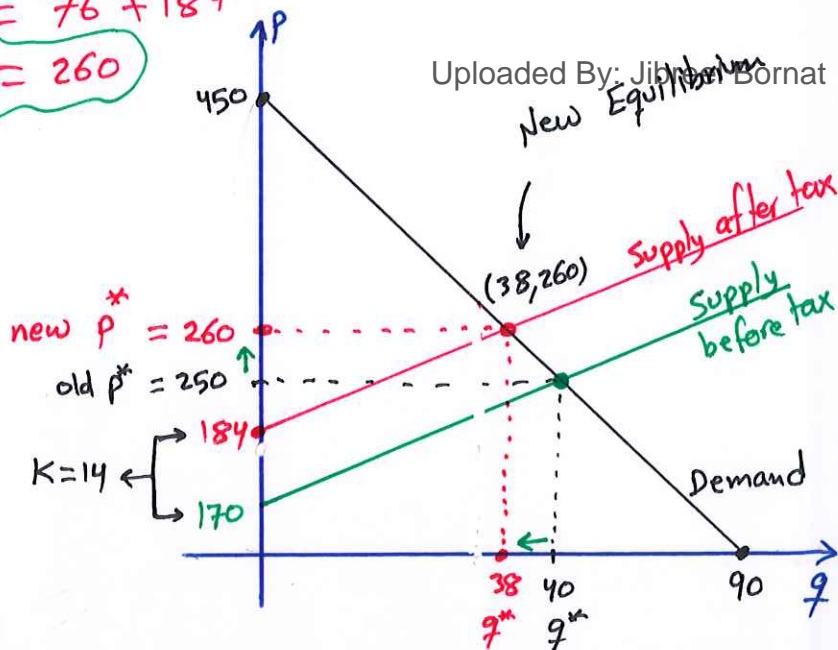 = 76 + 184
= 260
P
Uploaded By: Jibreel Bornat
450
New Equilibrium
Supply after tax
(38,260)
Supply
before tax
new P* = 260
old P* = 250
184
K=14
170
Demand
38
40
90
q
q*
q*